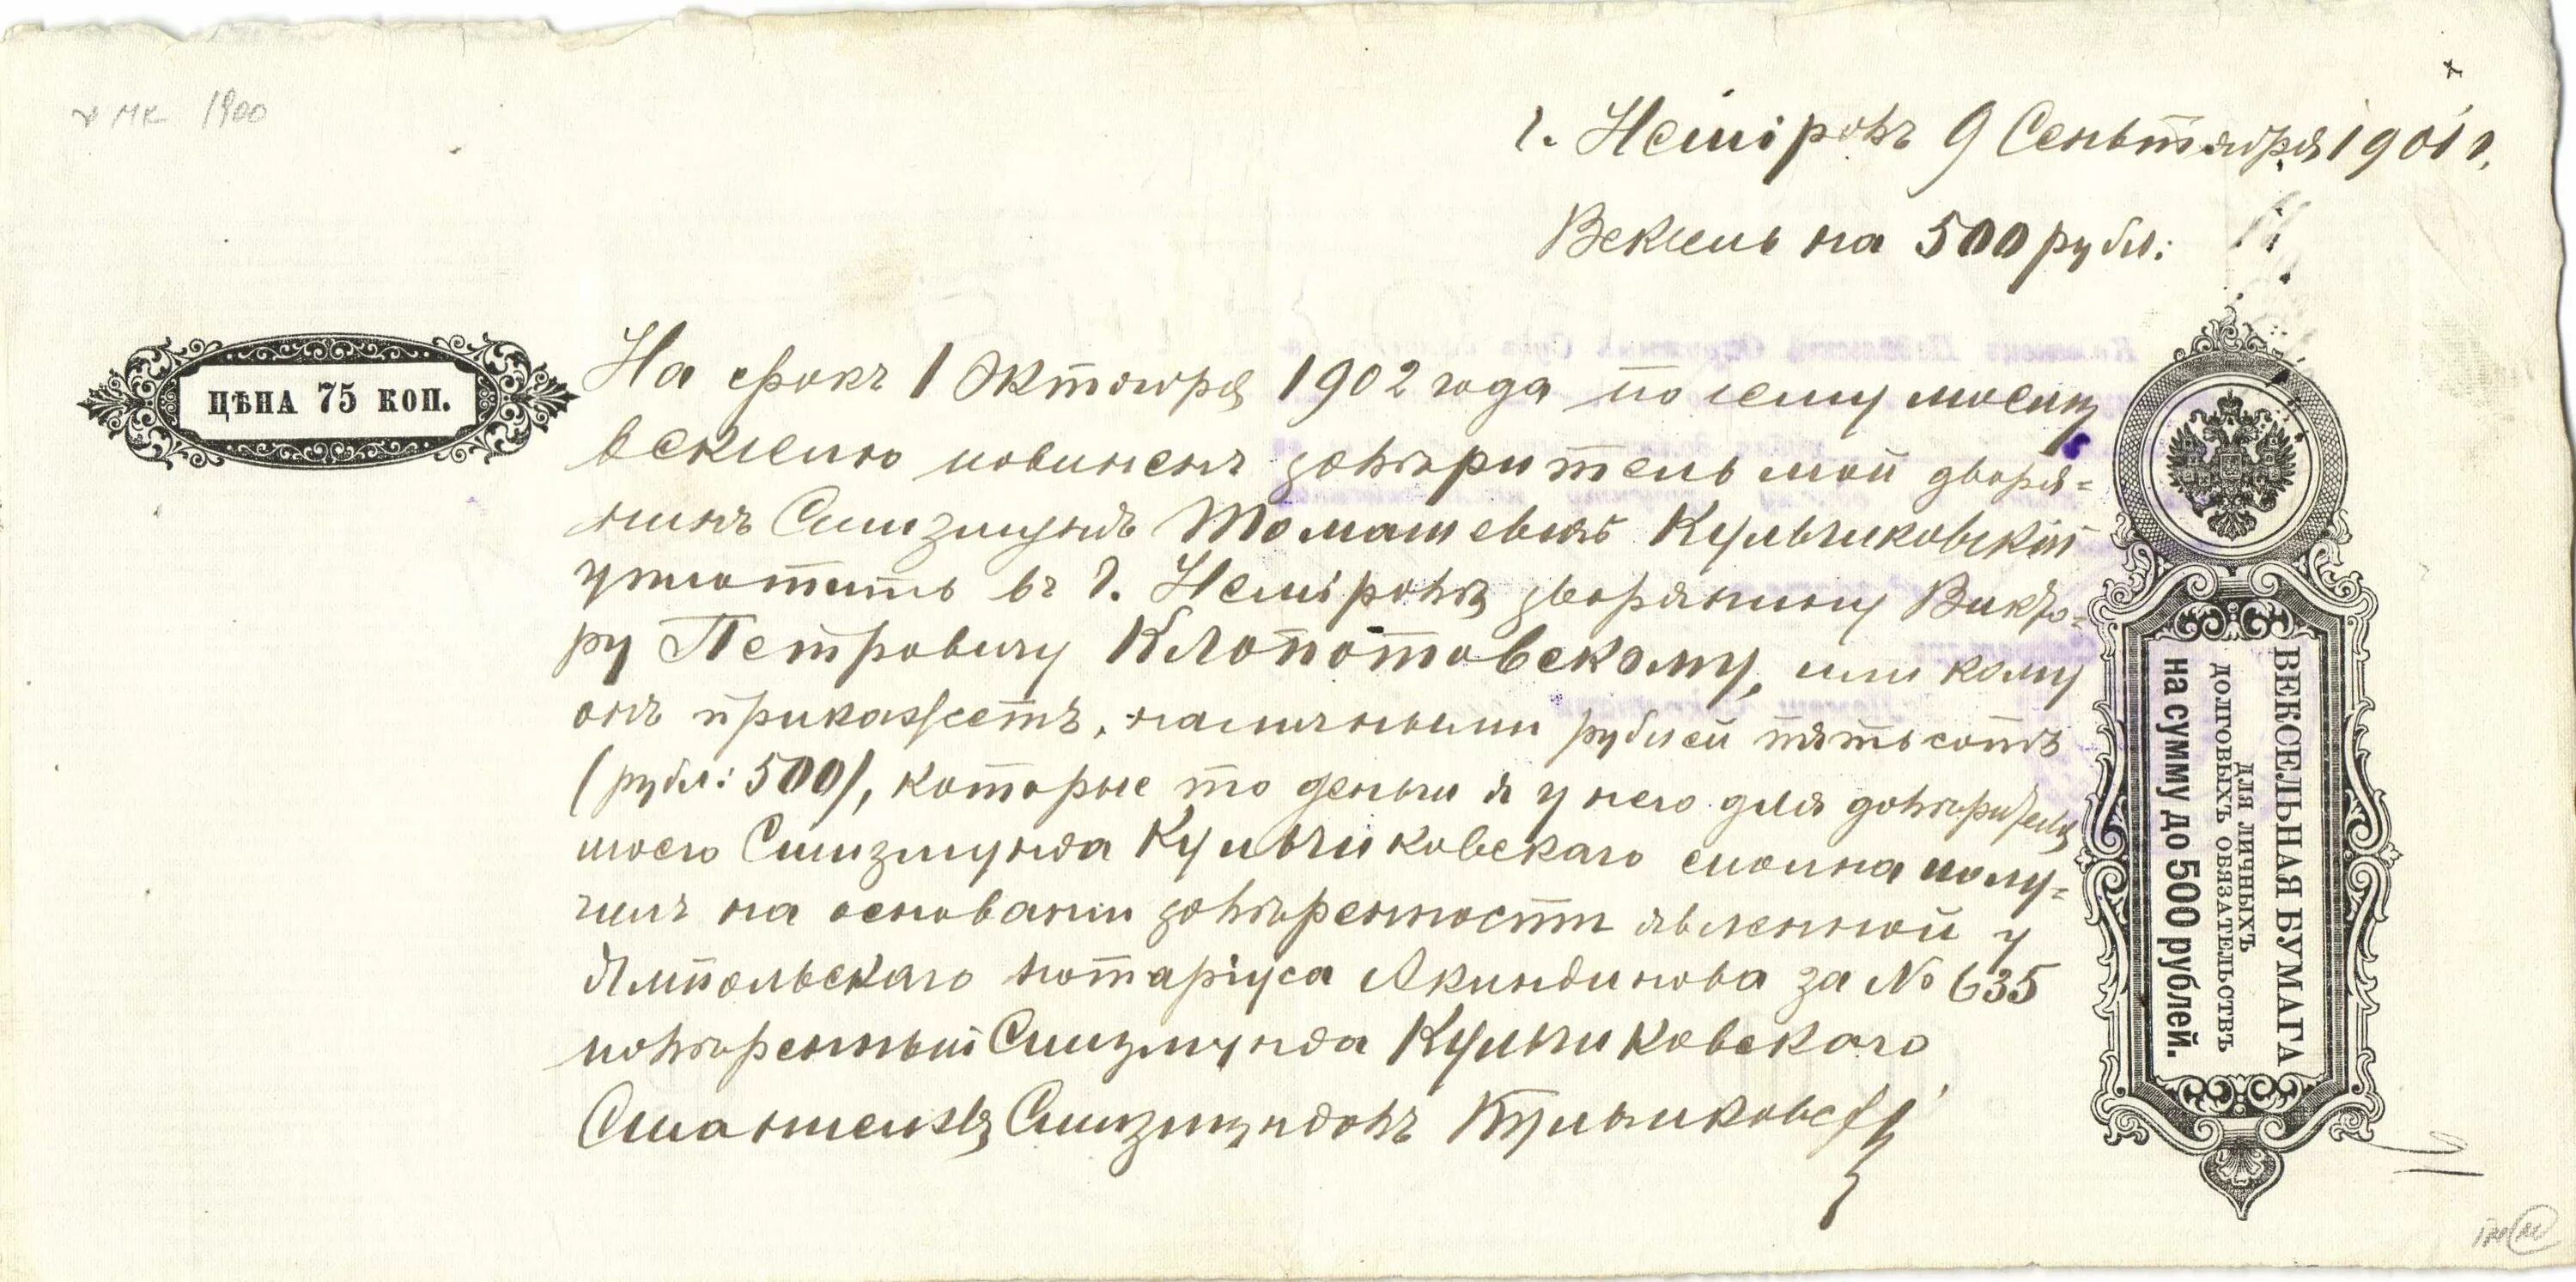 1900
г. Неміровъ 9 Сентября 1901 г.
Вексель на 500 рубл:
ЦѢНА 75 КОП.
На срокъ 1 Октября 1902 года по сему моему
векселю повиненъ довѣритель мой дворя=
нинъ Сигизмундъ Томашевичъ Кульчиковскій
уплотить въ г. Неміровѣ дворянину Викто=
ру Петровичу Клопотовскому, или кому
онъ прикажетъ, наличными рублей пятьсотъ
(рубл: 500), которые то деньги я у него для довѣрителя
моего Сигизмунда Кульчиковскаго сполна полу=
чилъ на основании довѣренности явленной у
Ямпольскаго нотаріуса Акиндинова за № 635
повѣренный Сигизмунда Кульчиковскаго
Сигизмундовъ Кульчиковскій
ВЕКСЕЛЬНАЯ БУМАГА
ДЛЯ ЛИЧНЫХЪ
ДОЛГОВЫХЪ ОБЯЗАТЕЛЬСТВЪ
на сумму до 500 рублей.